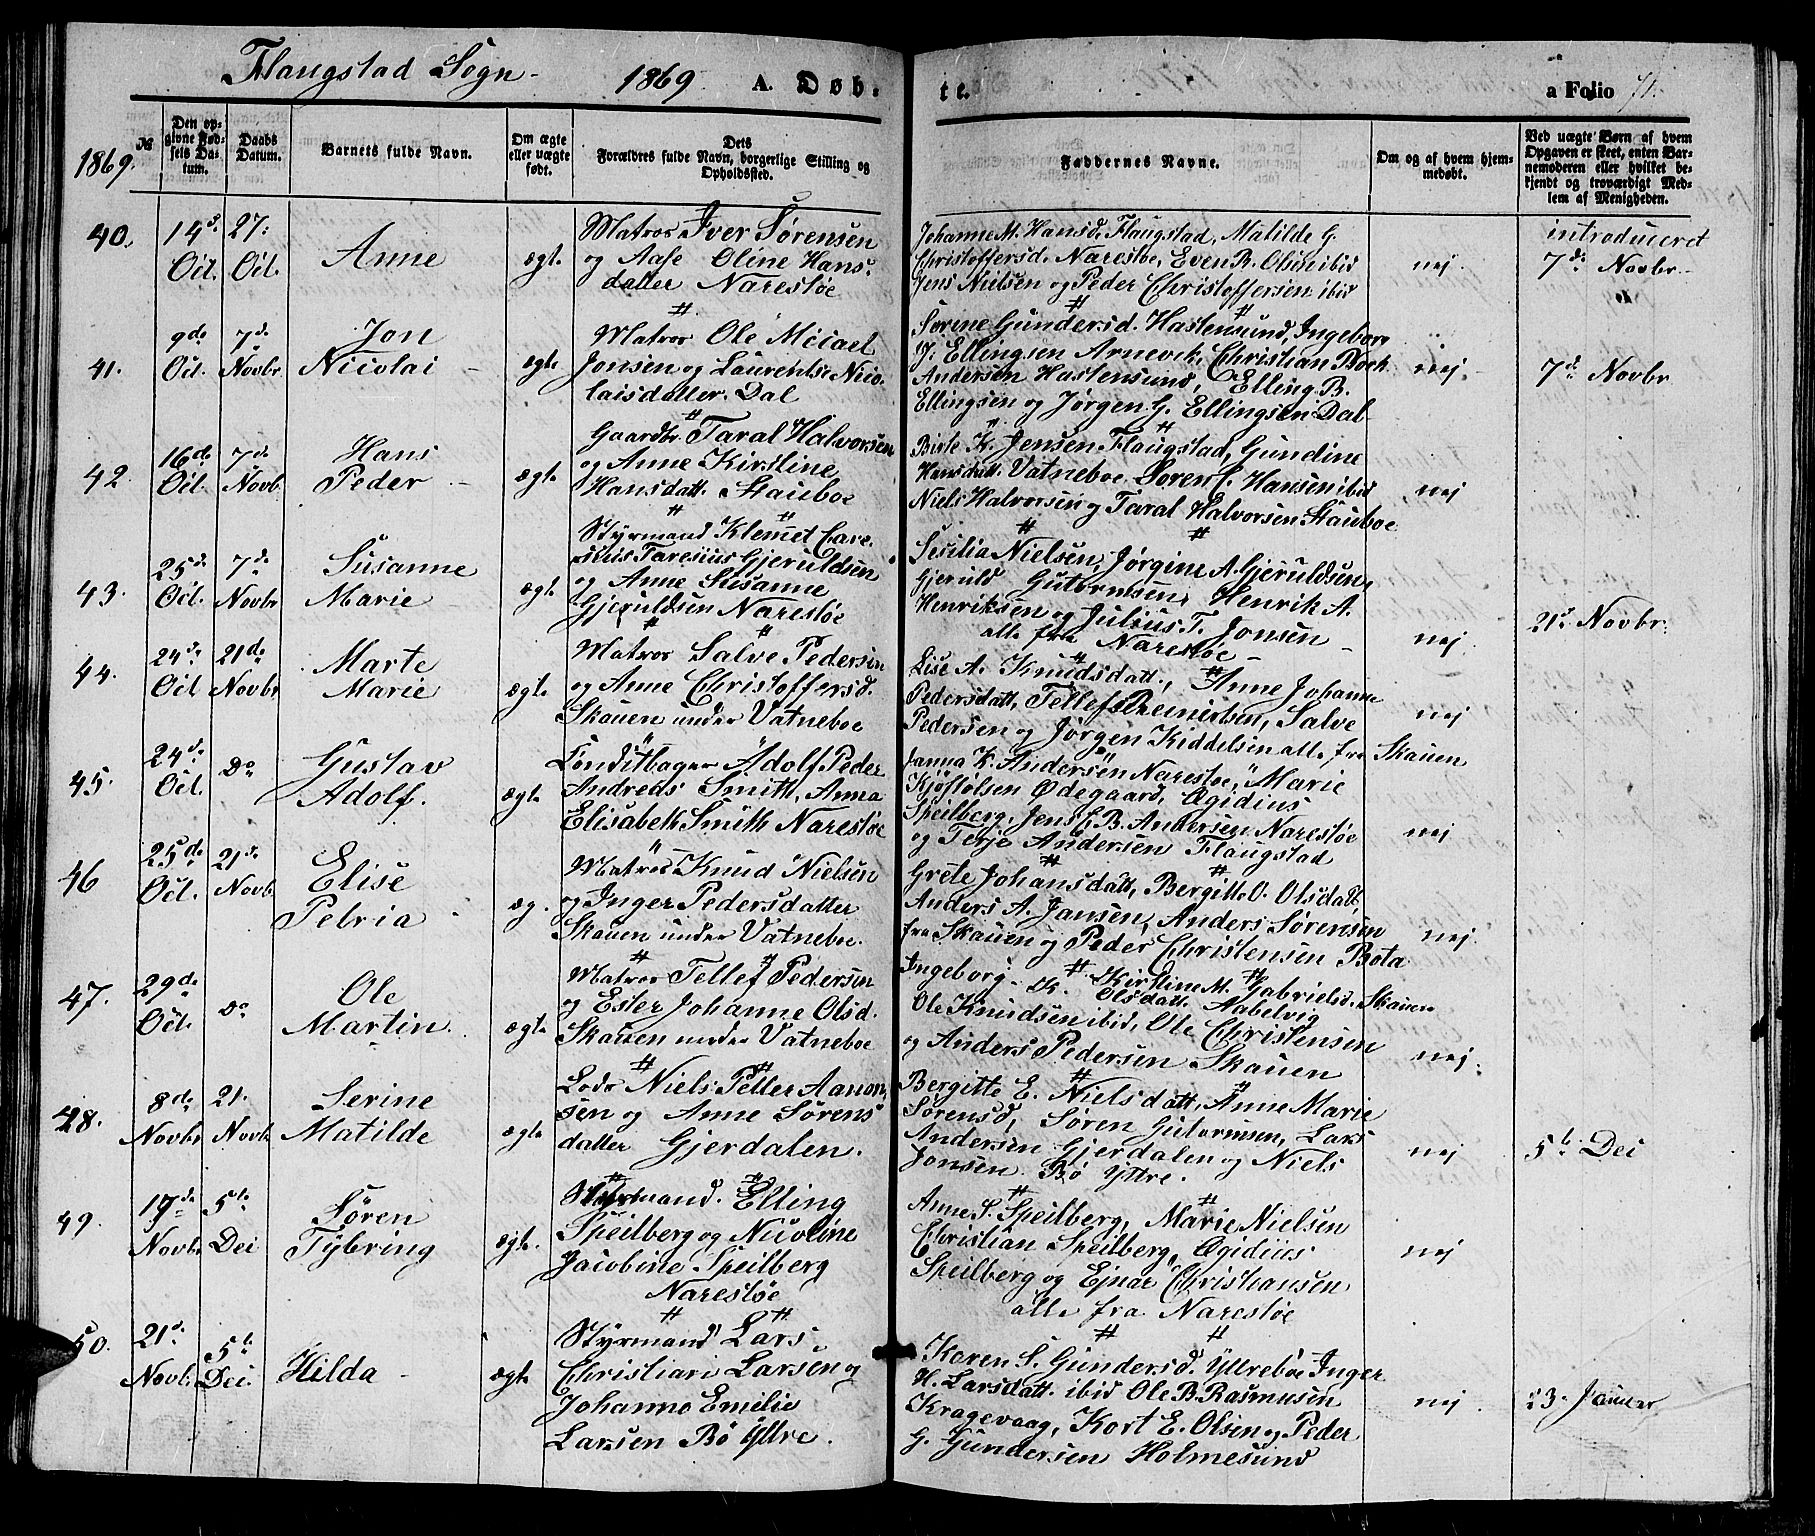 Flaugstad Sogn - 1869 A. Døb- te. a Folio
1869.
№
Den opgivne Fødsels Datum.
Daabs Datum.
Barnets fulde Navn.
Om ægte eller uægte født.
Dets Forældres fulde Navn, borgerlige Stilling og Opholdssted.
Faddernes Navne.
Om og af hvem hjemmedøbt.
Ved uægte Børn af hvem Opgaven er skeet, enten Barnemoderen eller hvilket bekjendt og troværdigt Medlem af Menigheden.
40. 14d Oct. 27. Oct. Anne ægt.
Matros Iver Sørensen
og Aase Oline Hans-
datter Narestøe
Johanne M. Hansd. Flaugstad, Matilde G.
Christoffersd. Narestøe, Even B. Olsen ibid
Jens Nielsen og Peder Christoffersen ibid
nej.
introduceret
7de Novbr.
41. 9de Oct. 7d Novbr Jon
Nicolai - ægt.
Matros Ole Micael
Jonsen og Laurentse Nico-
laisdatter. Dal
Sørine Gundersd. Hastensund, Ingeborg
J. Ellingsen Arnevik, Christian Bock
Andersen Hastensund, Elling B.
Ellingsen og Jørgen G. Ellingsen Dal
nej.
7d Novbr
42. 16de Oct. 7d Novb. Hans
Peder - ægt.
Gaardbr. Taral Halvorsen
og Anne Kirstine
Hansdatt. Stauboe
Birte K. Jensen Flaugstad, Gundine
Hansdatt. Vatneboe Soren J. Hansen ibid
Niels Halvorsen og Taral Halvorsen Stauboe
nej
43. 25d Oct. 7d Novbr Susanne
Marie - ægt.
Styrmand Klemet Care-
Taresius Gjeruldsen
og Anne Susanne
Gjeruldsen Narestøe
Sesilia Nielsen, Jørgine A. Gjeruldsen,
Gjeruld Gutormsen, Henrik A.
Henriksen og Julius T. Jonsen -
alle fra Narestøe -
nej
21d Novbr.
44. 24d Oct 21de Novbr Marte
Marie ægt.
Matros Salve Pedersen
og Anne Christoffersd.
Skauen under Vatneboe
Lise A. Knudsdatt., Anne Johanne
Pedersdatt, Tellef Reiniertsen, Salve
Pedersen og Jørgen Kiddelsen alle fra Skauen
nej
45. 24de Oct. Do Gustav
Adolf. ægt.
Conditbager Adolf Peder
Andreas Smith, Anna
Elisabeth Smith Narestøe
Janna K. Andersen Narestøe, Marie
Kjøstolsen Ødegaard, Ægidius
Speilberg, Jens J. B. Andersen Narestøe
og Terje Andersen Flaugstad
nej
46 25de Oct. 21de Novb. Elise
Petria - æg.
Matros Knud Nielsen
og Inger Pedersdatter
Skauen under Vatneboe.
Grete Johansdatt, Bergitte O. Olsdatt,
Anders A. Jansen, Anders Sørensen
fra Skauen og Peder Christensen Bota
nej.
47. 29de Oct. Do Ole
Martin. ægt.
Matros Tellef Pedersen
og Ester Johanne Olsd.
Skauen under Vatneboe
Ingeborg K. Olsdatt. Kirstine M. Gabrielsd. Skauen
Ole Knudsen ibid, Ole Christensen Nabelvig
og Anders Pedersen Skauen
nej.
48. 8de Novbr 21. Novb. Serine
Matilde ægt.
Lods Niels Petter Aanon-
sen og Anne Sørens-
datter Gjerdalen.
Bergitte E. Nielsdatt, Anne Marie
Sørensd, Søren Gutormsen, Lars
Andersen Gjerdalen og Niels
Jonsen. Bø Yttre.
nej
5te Dei
49. 17de Novbr 5te Dei Søren
Tybring ægt.
Styrmand. Elling
Speilberg og Nicoline
Jacobine Speilberg
Narestøe
Anne S. Speilberg, Marie Nielsen
Christian Speilberg, Ægidius
Speilberg og Ejnar Christiansen
alle fra Narestøe
nej
50. 21d Novb. 5te Dei. Hilda - ægt.
Styrmand Lars
Christian Larsen og
Johanne Emilie
Larsen Bø Yttre.
Karen S. Gundersd. Yttrebøe Inger
H. Larsdatt. ibid Ole B. Rasmusen
Kragevaag, Kort E. Olsen og Peder
G. Gundersen Holmesund
nej
23. Januar